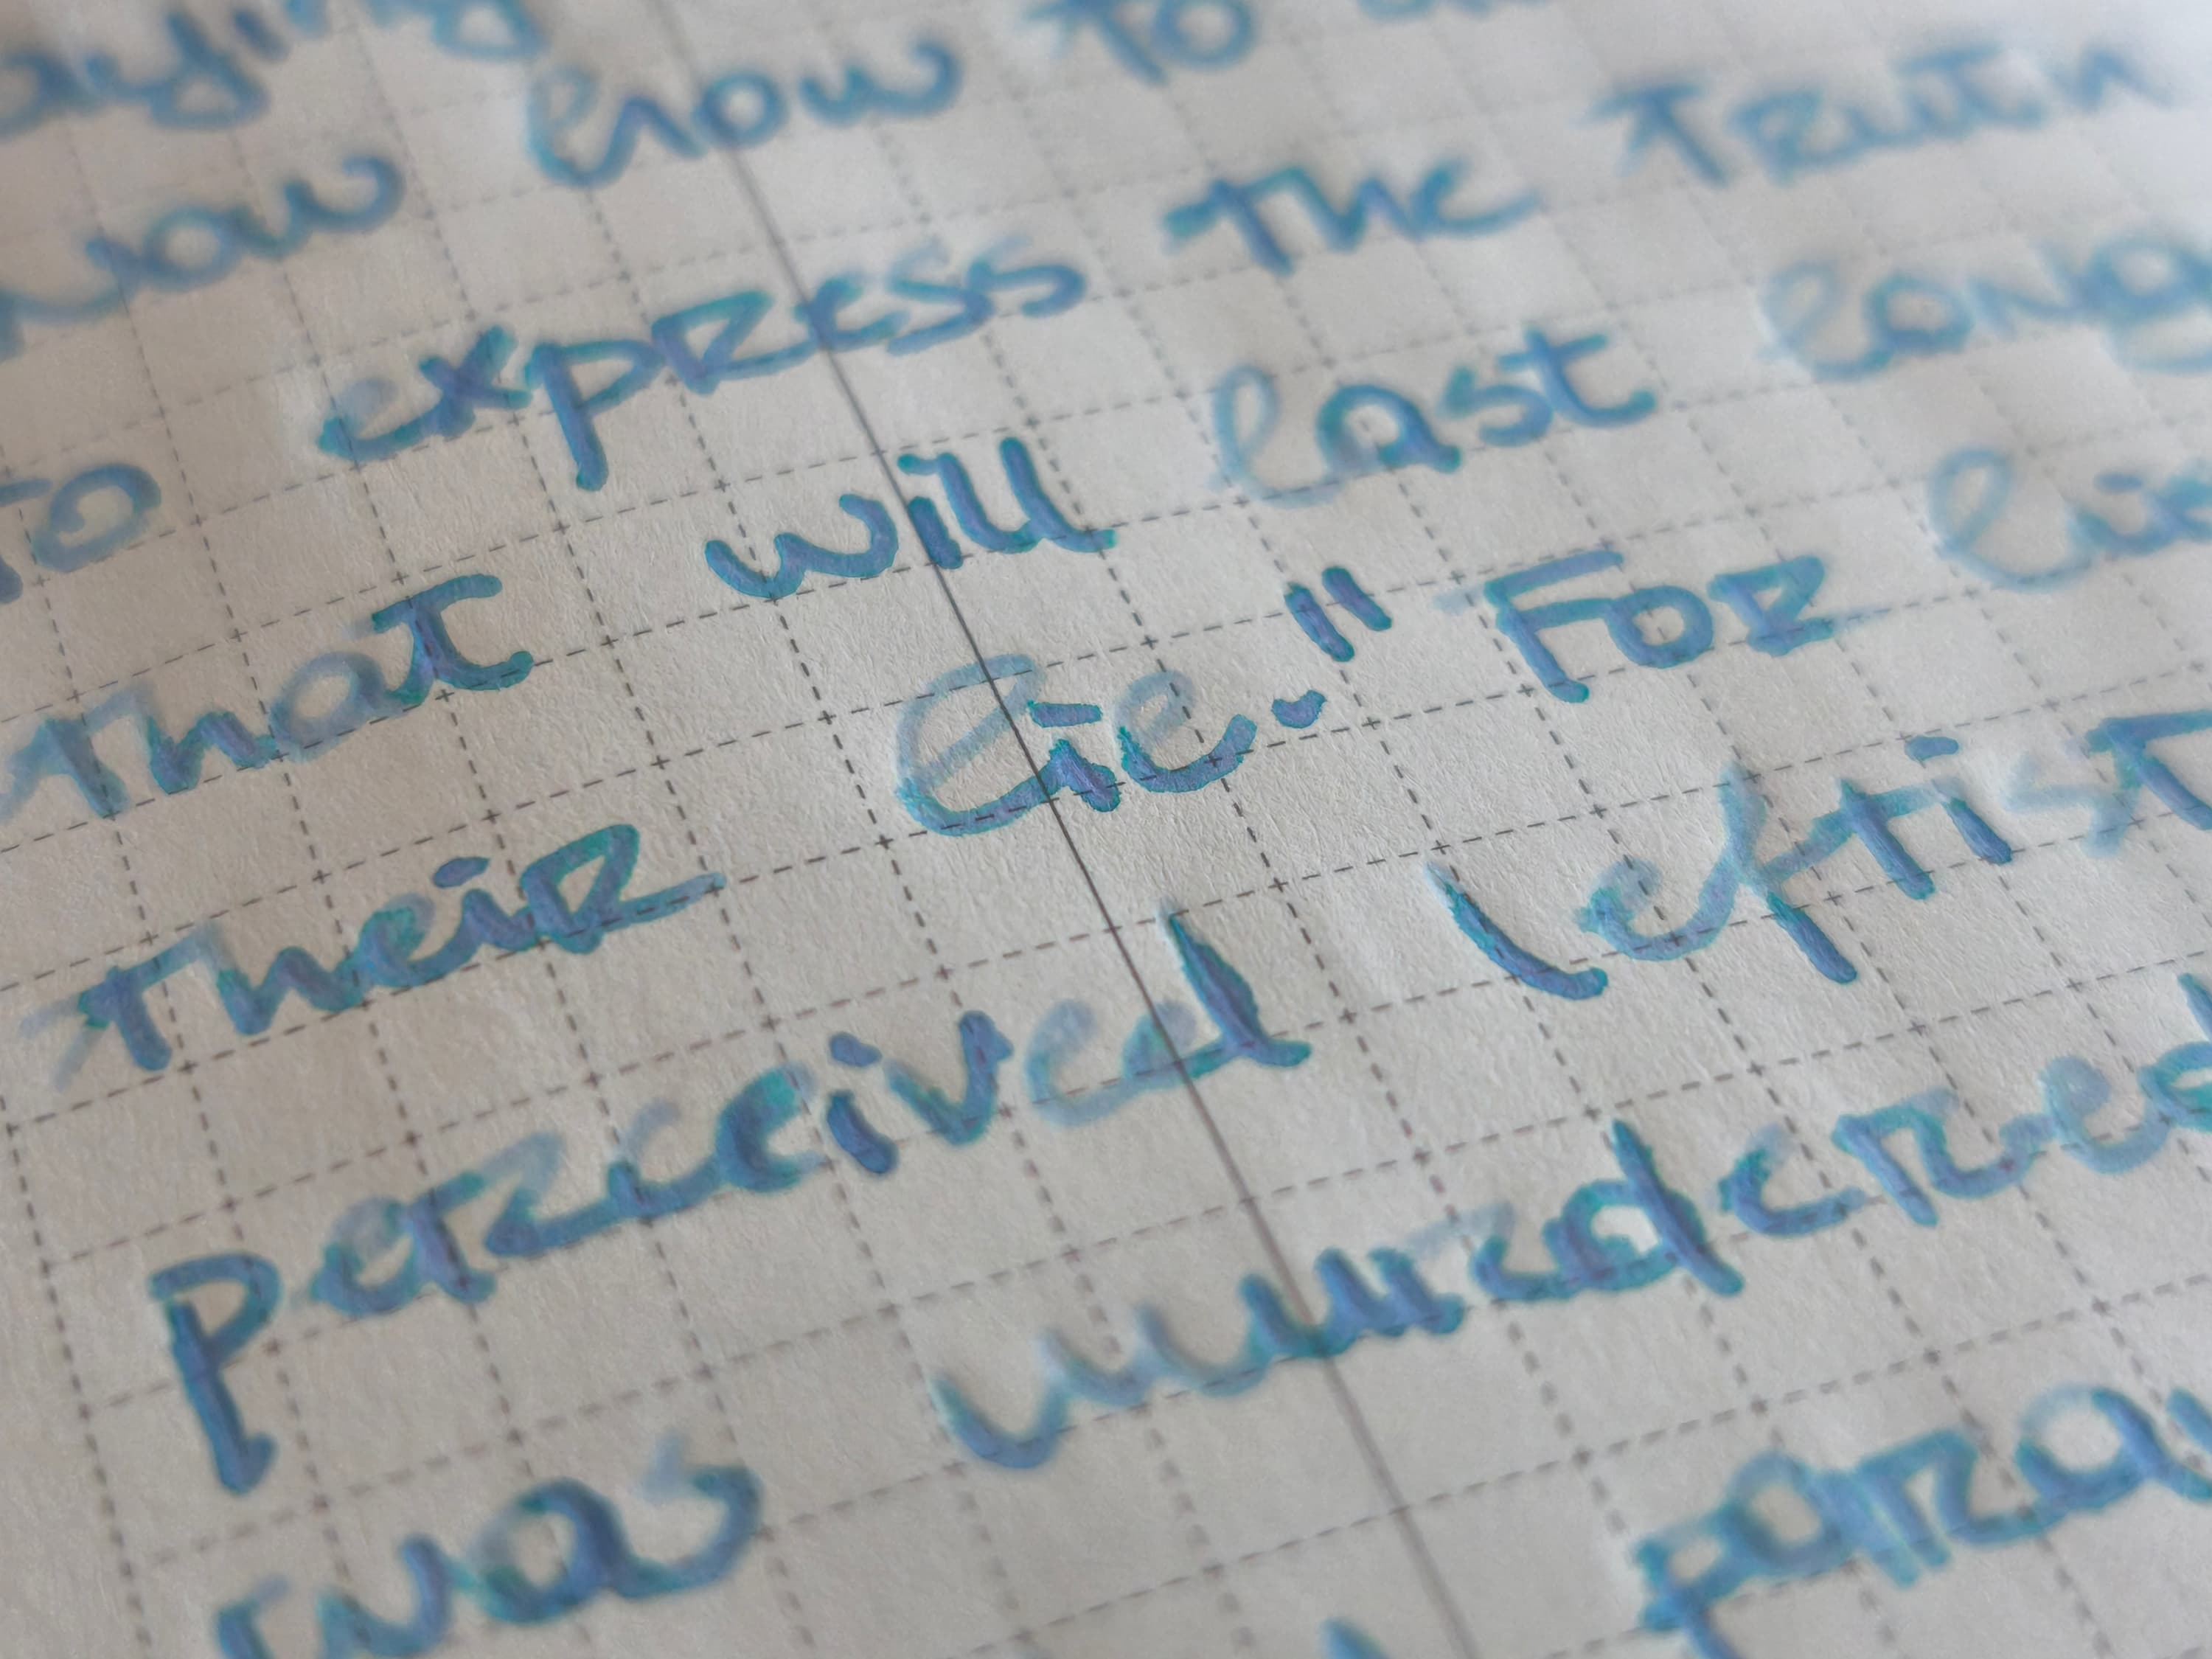 how to
to express the Truth
that will last
their lie." For
perceived leftist
was murdered